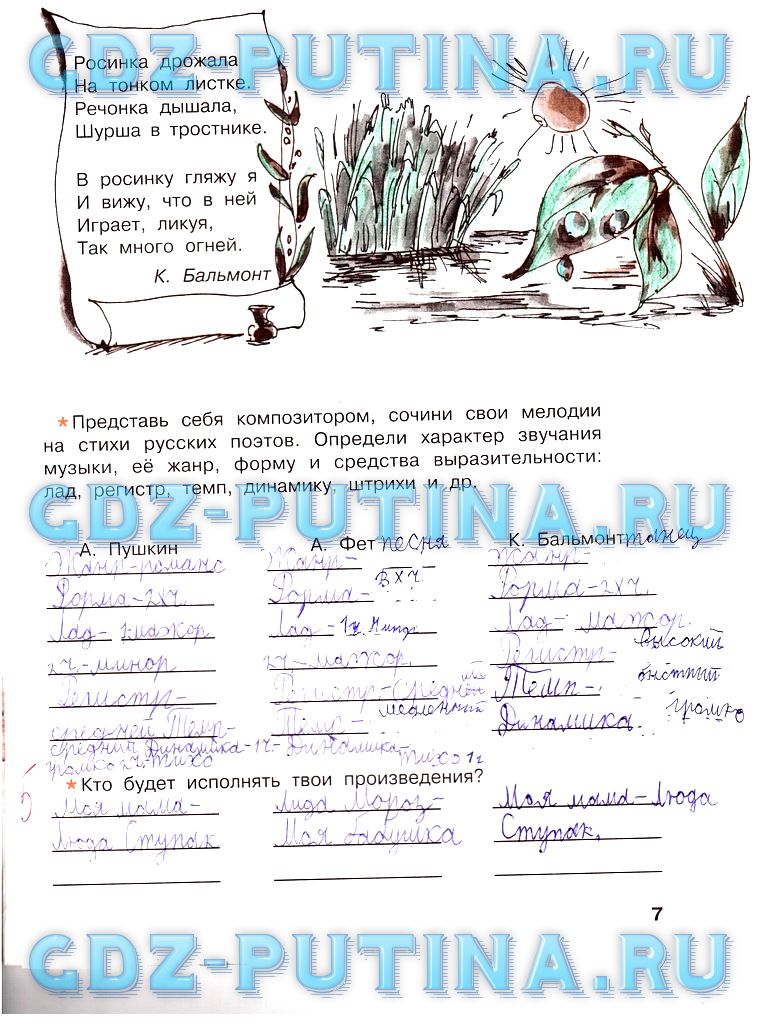 GDZ-PUTINA.RU
Росинка дрожала
На тонком листке.
Речонка дышала,
Шурша в тростнике.
В росинку гляжу я
И вижу, что в ней
Играет, ликуя,
Так много огней.
К. Бальмонт
*Представь себя композитором, сочини свои мелодии
на стихи русских поэтов. Определи характер звучания
музыки, её жанр, форму и средства выразительности:
лад, регистр, темп, динамику, штрихи и др.
GDZ-PUTINA.RU
А. Пушкин
Жанр-романс
Форма-2хч.
Лад- 1мажор
2ч.-минор
Регистр-
средней Темп-
средний Динамика-1ч-
громко 2ч-тихо
А. Фет песня
Жанр-
Форма- 2хч.
Лад-1ч.
2ч-мажор.
Регистр-средней
Темп- медленный
Динамика-
тихо 1ч
К. Бальмонт танец
Жанр-
Форма-2хч.
Лад- мажор.
Регистр- высокий
Темп- быстрый
Динамика громко
*Кто будет исполнять твои произведения?
Моя мама-
Люда Ступак
Лида Мороз-
Моя бабушка
Моя мама-Люда
Ступак.
5
7
GDZ-PUTINA.RU